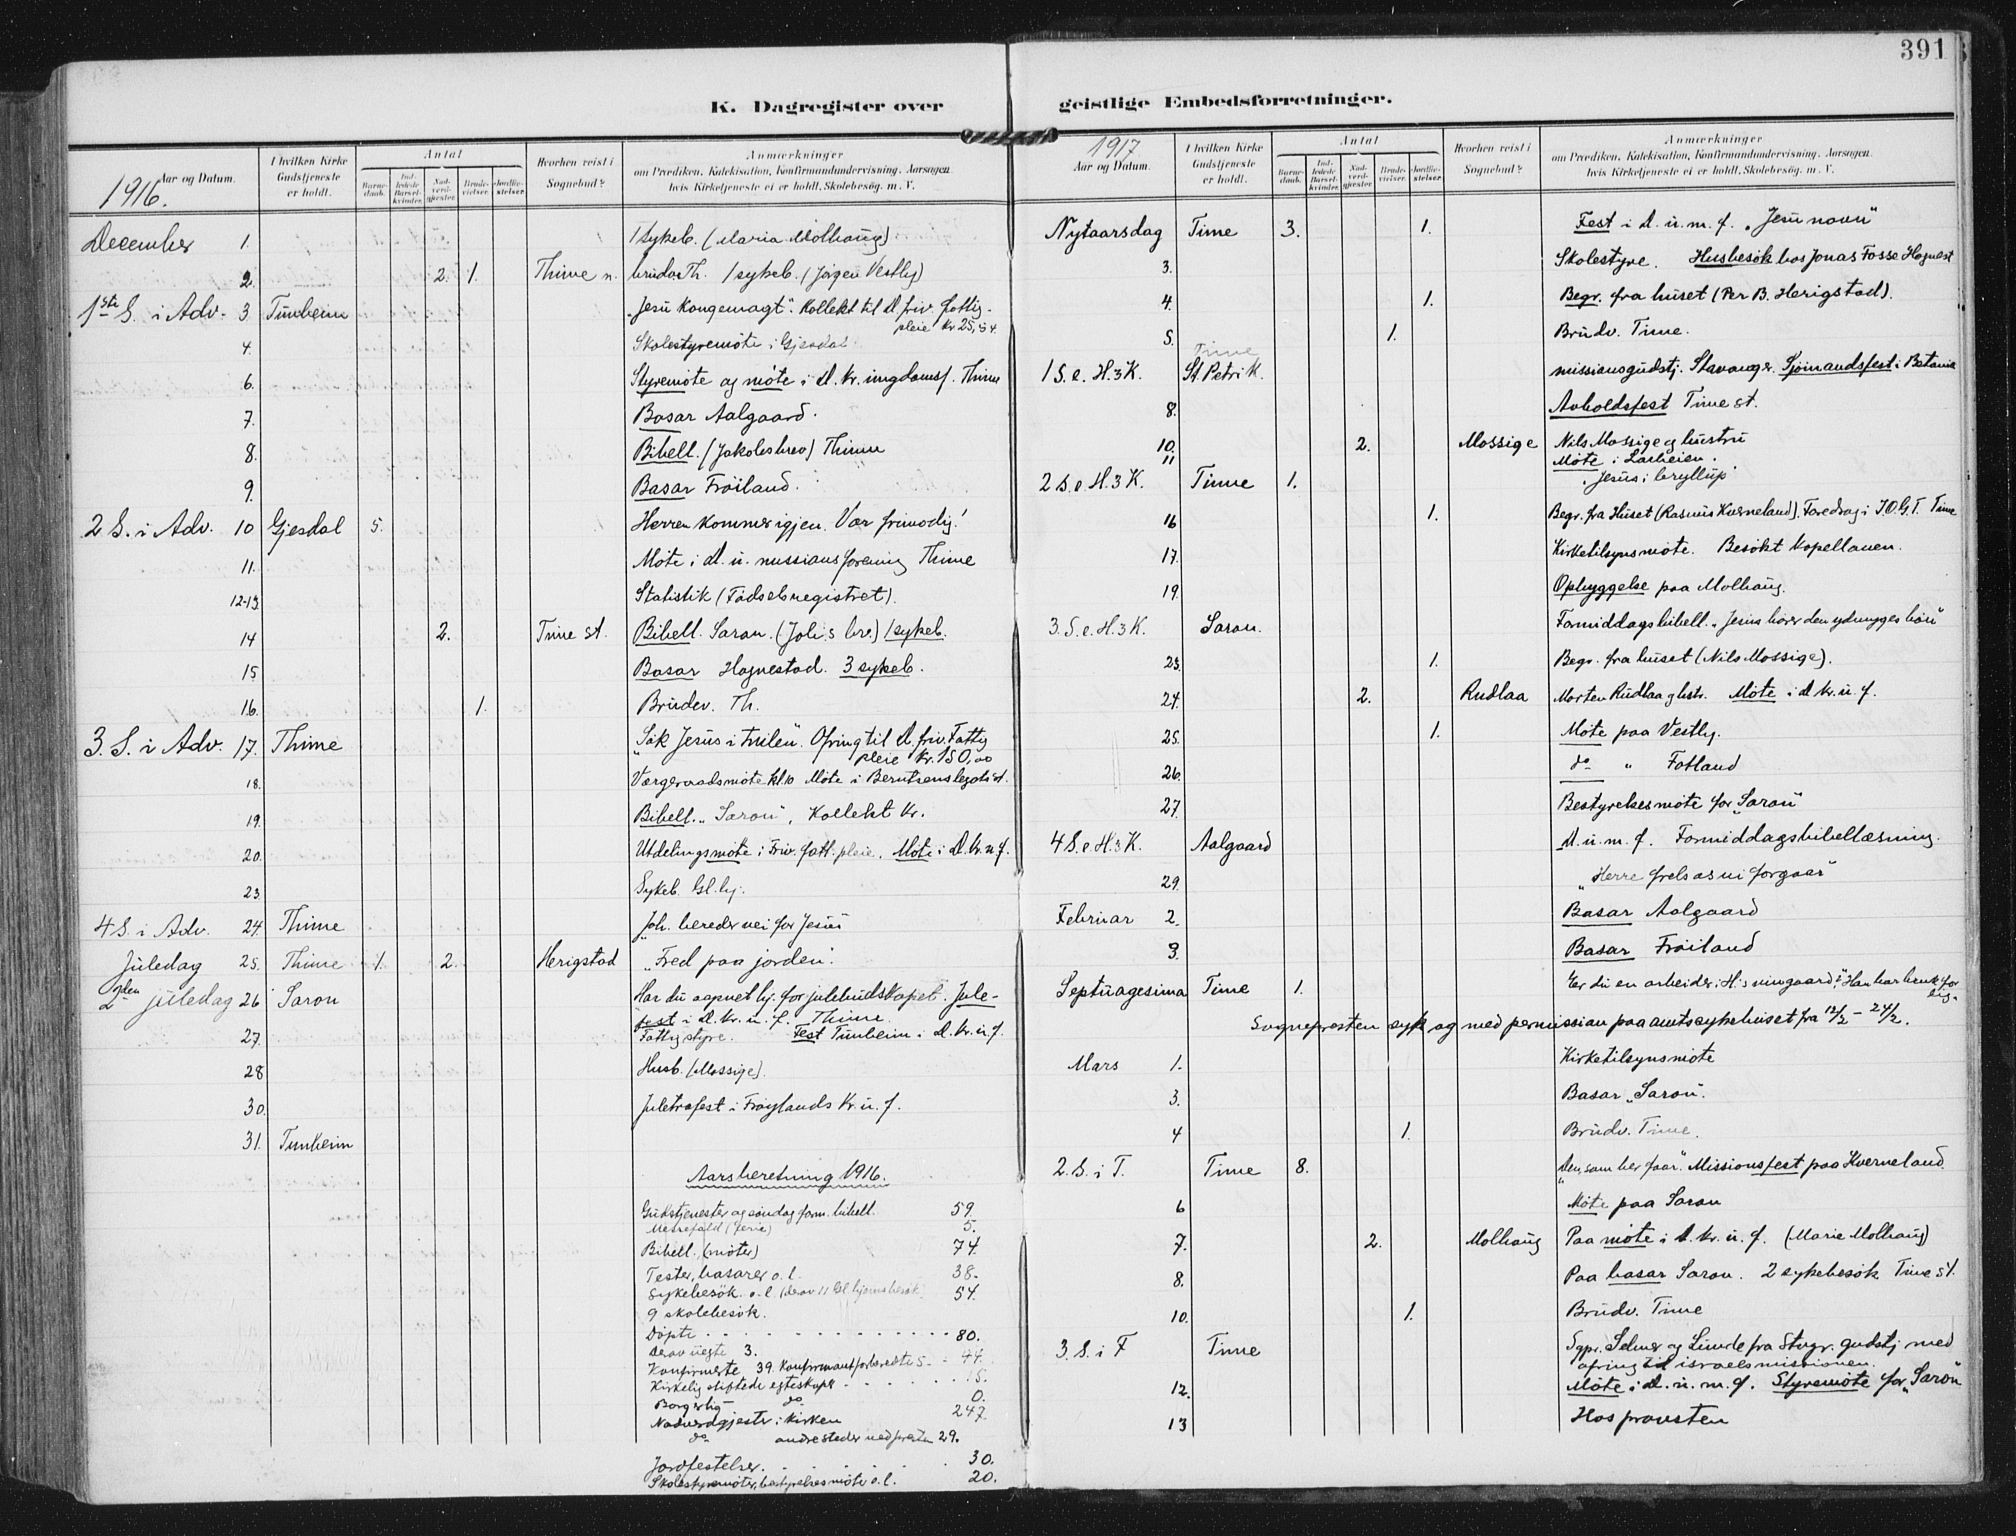 391
K. Dagregister over geistlige Embedsforretninger.
Aar og Datum.
I hvilken Kirke Gudstjeneste er holdt.
Antal
Barne-daab.
Ind-ledede Barsel-kvinder.
Nad-verd-gjester.
Brude-vielser.
Jordfæ-stelser.
Hvorhen reist i Sognebud?
Anmærkninger
om Prædiken, Katekisation, Konfirmandundervisning, Aarsagen
hvis Kirketjeneste ei er holdt, Skolebesøg. m. V.
1916.
December 1. 1 sykeb. (Maria Mölhaug)
2. 2. 1. Thime n. brudev Th. 1 sykeb. (Jörgen Vestly)
1ste S. i Adv. 3 Tunheim „Jesu Kongemagt". Kollekt til d. friv. fattig-
pleie kr 25,54.
4. Skolestyremöte i Gjesdal
6. Styremöte og möte i d. kr. ungdomsf. Thime
7. Basar Aalgaard.
8. Bibell. (Jakobs brev) Thime
9. Basar Fröiland.
2 S. i Adv. 10 Gjesdal 5. Herren kommer igjen. Vær frimodig!
11. Möte i d. u. missionsforening Thime
12-13. Statistik (Födselsregistret).
14 2. Time st. Bibell. Saron. (Joh's brv.) 1 sykeb.
15 Basar Hognestad. 3 sykeb.
16. 1. Brudev. Th.
3. S. i Adv. 17. Thime „Sök Jesus i tvilen". Ofring til d. friv. Fattig
pleie kr. 150,00
18. Værgeraadsmöte kl. 10 Möte i Berntsens legats st.
19. Bibell. „Saron", Kollekt kr.
20. Utdelingsmöte i Friv. fatt. pleie. Möte i d. kr. u. f.
23. Sykeb. Gl. hj.
4 S. i Adv. 24. Thime „Joh. bereder vei for Jesus
Juledag 25. Thime 1. 2. Herigstad „Fred paa jorden".
2den juledag 26 Saron Har du aapnet hj. for julebudskapet. Jule-
fest i d. kr. u. f. Thime.
27. Fattigstyre. Fest Tunheim i d. kr. u. f.
28 Husb. (Mossige).
30. Juletrefest i Fröylands kr. u. f.
31. Tunheim
Aarsberetning 1916.
Gudstjenester og söndag form. bibell. 59.
Messefald (ferie) 5.
Bibell. (möter) 74.
Fester, basarer o. l. 38.
Sykebesök o. l. (derav 11 Gl. hjemsbesök 54.
9 skolebesök.
Döpte 80.
Derav uegte 3.
Konfirmerte 39. Konfirmantforberedte 5 = 44.
Kirkelig stiftede egteskaper 15.
Borgerlig do 0.
Nadverdgjester i kirken 247.
do andre steder ved presten 29.
Jordfestelser 30.
Skolestyremöter, bestyrelsesmöte o. l. 20.
1917
Aar og Datum.
I hvilken Kirke Gudstjeneste er holdt.
Antal
Barne-daab.
Ind-ledede Barsel-kvinder.
Nad-verd-gjester.
Brude-vielser.
Jordfæ-stelser.
Hvorhen reist i Sognebud?
Anmærkninger
om Prædiken, Katekisation, Konfirmandundervisning, Aarsagen,
hvis Kirketjeneste ei er holdt, Skolebesøg. m. V.
Nytaarsdag Time 3. 1. Fest i d. u. m. f. „Jesu navn"
3. Skolestyre. Husbesök hos Jonas Fosse Hognest
4. 1. Begr. fra huset (Per B. Herigstad).
5. 1. Brudv. Time.
Time
1 S. e. H. 3 K. St. Petri K. missionsgudstj. Stavanger. Sjömandsfest i Betania
8. Avholdsfest Time st.
10. 2. Mossige Nils Mossige og hustru
11 Möte i
2 S. e. H. 3 K. Time 1. „Jesus i bryllup".
16 1. Begr. fra Huset (Rasmus Kverneland). Foredrag i I.O.G.T. Time
17. Kirketilsynsmöte. Besökt kapellanen.
19. Opbyggelse paa Molhaug.
3. S. e. H. 3 K. Saron. Formiddagsbibell. „Jesus hörer den ydmyges bön"
23. 1. Begr. fra huset (Nils Mossige).
24. 2. Rudlaa Morten Rudlaa og hstr. Möte i d. kr. u. f.
25. 1. Möte paa Vestly.
26. do " Fotland
27. Bestyrelsesmöte for „Saron"
4 S. e. H. 3 K. Aalgaard d. u. m. f. Formiddagsbibellæsning.
29. „Herre frels os vi forgaar"
Februar 2. Basar Aalgaard
3. Basar Fröiland
Septuagesima Time 1. „Er du en arbeider i H.'s vingaard"?
Sognepresten syk og med permission paa amtssykehuset fra 12/2 – 24/2.
Mars 1. Kirketilsynsmöte
3. Basar „Saron".
4 1. Brudv. Time.
2. S. i F. Time 8. „Den, som ber faar". Missionsfest paa Kverneland.
6 Möte paa Saron
7. 2. Molhaug Paa möte i d. kr. u. f. (Marie Molhaug)
8. Paa basar Saron. 2 sykebesök Time st.
10. 1. Brudv. Time
3. S. i F Time Sgpr. Selmer og Lunde fra Stvgr. gudstj med
ofring til israelsmissionen.
12. Möte i d. u. m. f. Styremöte for „Saron"
13 Hos provsten